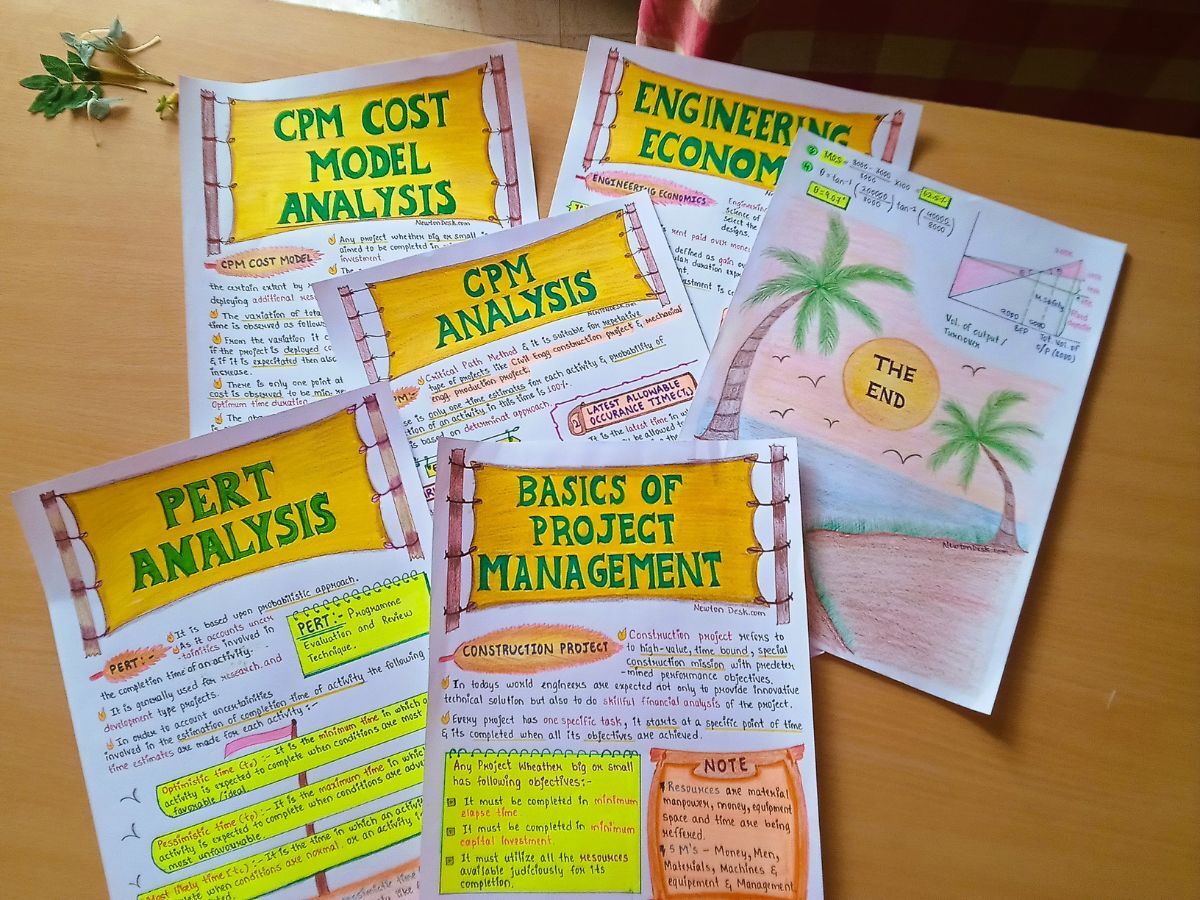 CPM COST
MODEL
ANALYSIS
NewtonDesk.com
CPM COST MODEL
Any project whether big or small is
aimed to be completed in
investment.
The
the certain extent by
deploying additional
The variation of total
time is observed as follows
From the variation it
if the project is deployed
& if it is expectated then also
increase.
There is only one point at
cost is observed to be min.
Optimum time duration
The
ENGINEERING
ECONOM
ENGINEERING ECONOMICS
Engineering
science of
select the
designs.
is rent paid over money
defined as gain
duration
investment is
CPM
ANALYSIS
NewtonDesk.com
Critical Path Method & it is suitable for repetative
type of projects like Civil Engg construction project & mechanical
engg production project.
is only one time estimates for each activity & probability of
tion of an activity in this time is 100%.
is based on determinat approach.
LATEST ALLOWABLE
OCCURANCE TIME(TL)
It is the latest time in
may be allowed to
③ MOS =
④ θ = tan⁻¹
Vol. of output/
Turnover
THE
END
NewtonDesk.com
PERT
ANALYSIS
PERT:-
It is based upon probabilistic approach.
As it accounts uncer
-tainities involved in
the completion time of an activity.
It is generally used for research, and
development type projects.
In order to account uncertainities
involved in the estimation of completion time of activity the following
time estimates are made for each activity :-
PERT:- Programme
Evaluation and Review
Technique.
Optimistic time (to) :- It is the minimum time in which
activity is expected to complete when conditions are most
favorable/ideal.
Pessimistic time (tp) :- It is the maximum time in which
activity is expected to complete when conditions are
most unfavourable.
Most likely time (tc) :- It is the time in which an activity
when conditions are normal. or an activity
BASICS OF
PROJECT
MANAGEMENT
Newton Desk.com
CONSTRUCTION PROJECT
Construction project refers to
to high-value, time bound, special
construction mission with predeter
-mined performance objectives.
In todays world engineers are expected not only to provide innovative
technical solution but also to do skillful financial analysis of the project.
Every project has one specific task, it starts at a specific point of time
& its completed when all its objectives are achieved.
Any Project Wheather big or small
has following objectives:-
It must be completed in minimum
elapse time.
It must be completed in minimum
capital investment.
It must utilize all the resources
available judiciously for its
completion.
NOTE
Resources are material
manpower, money, equipment
space and time are being
reffered.
5 M's - Money, Men,
Materials, Machines &
equipement & Management